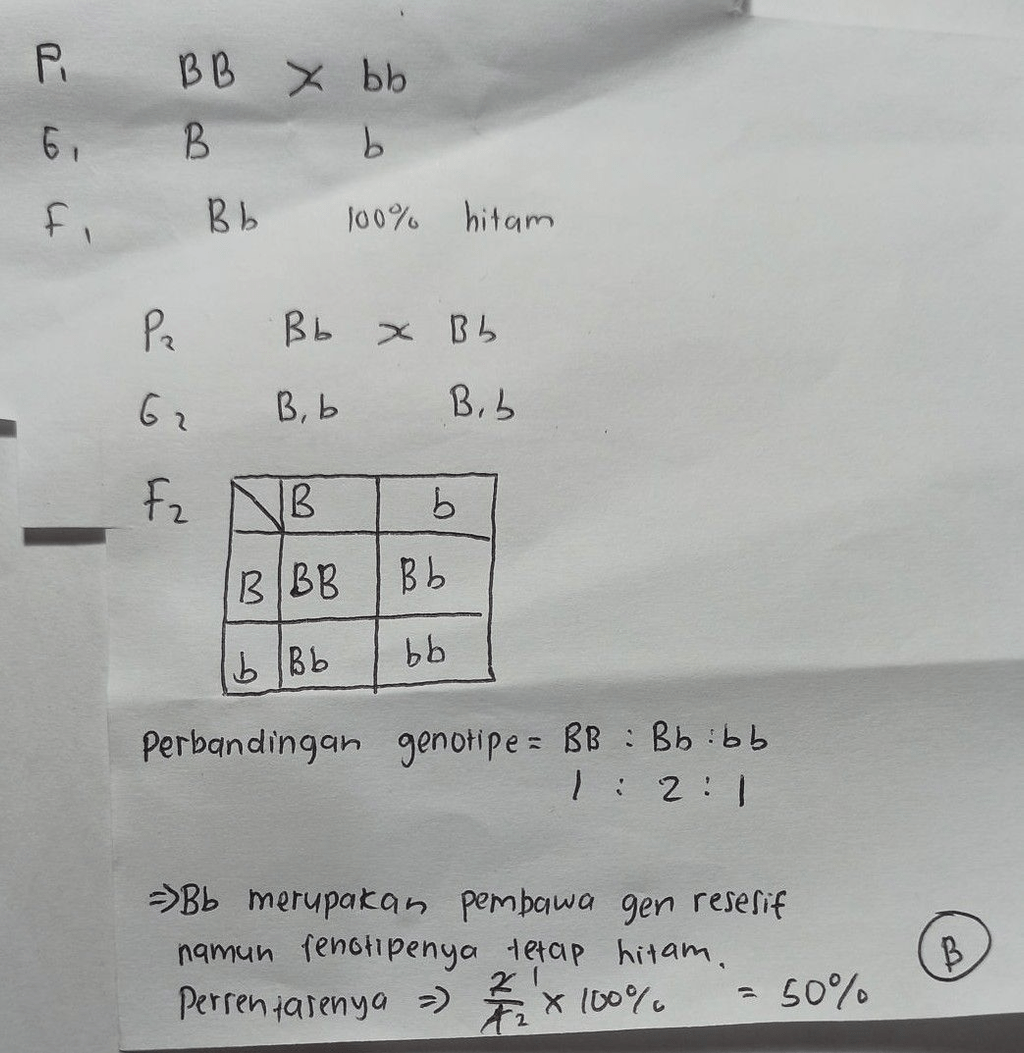 P1 BB x bb
G1 B b
F1 Bb 100% hitam
P2 Bb x Bb
G2 B, b B, b
F2 B b
B BB Bb
b Bb bb
Perbandingan genotipe = BB : Bb : bb
1 : 2 : 1
⇒ Bb merupakan pembawa gen resesif
namun fenotipenya tetap hitam.
Persentasenya ⇒ 2/4 1/2 x 100% = 50%
B